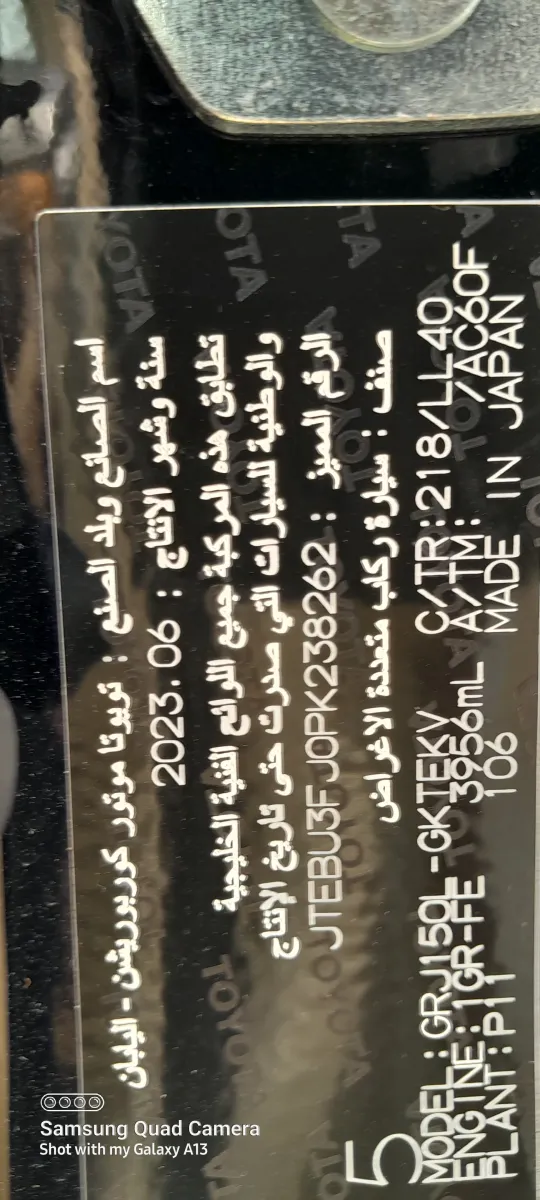 اسم الصانع وبلد الصنع : تويوتا موتور كوربوريشن - اليابان
سنة وشهر الانتاج : 2023.06
تطابق هذه المركبة جميع اللوائح الفنية الخليجية
والوطنية للسيارات التي صدرت حتى تاريخ الإنتاج
الرقم المميز : JTEBU3FJ0PK238262
صنف : سيارة ركاب متعددة الاغراض
5
MODEL:GRJ150L-GKTEKV C/TR:218/LL40
ENGINE:1GR-FE 3956mL A/TM: /AC60F
PLANT:P11 106 MADE IN JAPAN
TOYOTA
Samsung Quad Camera
Shot with my Galaxy A13